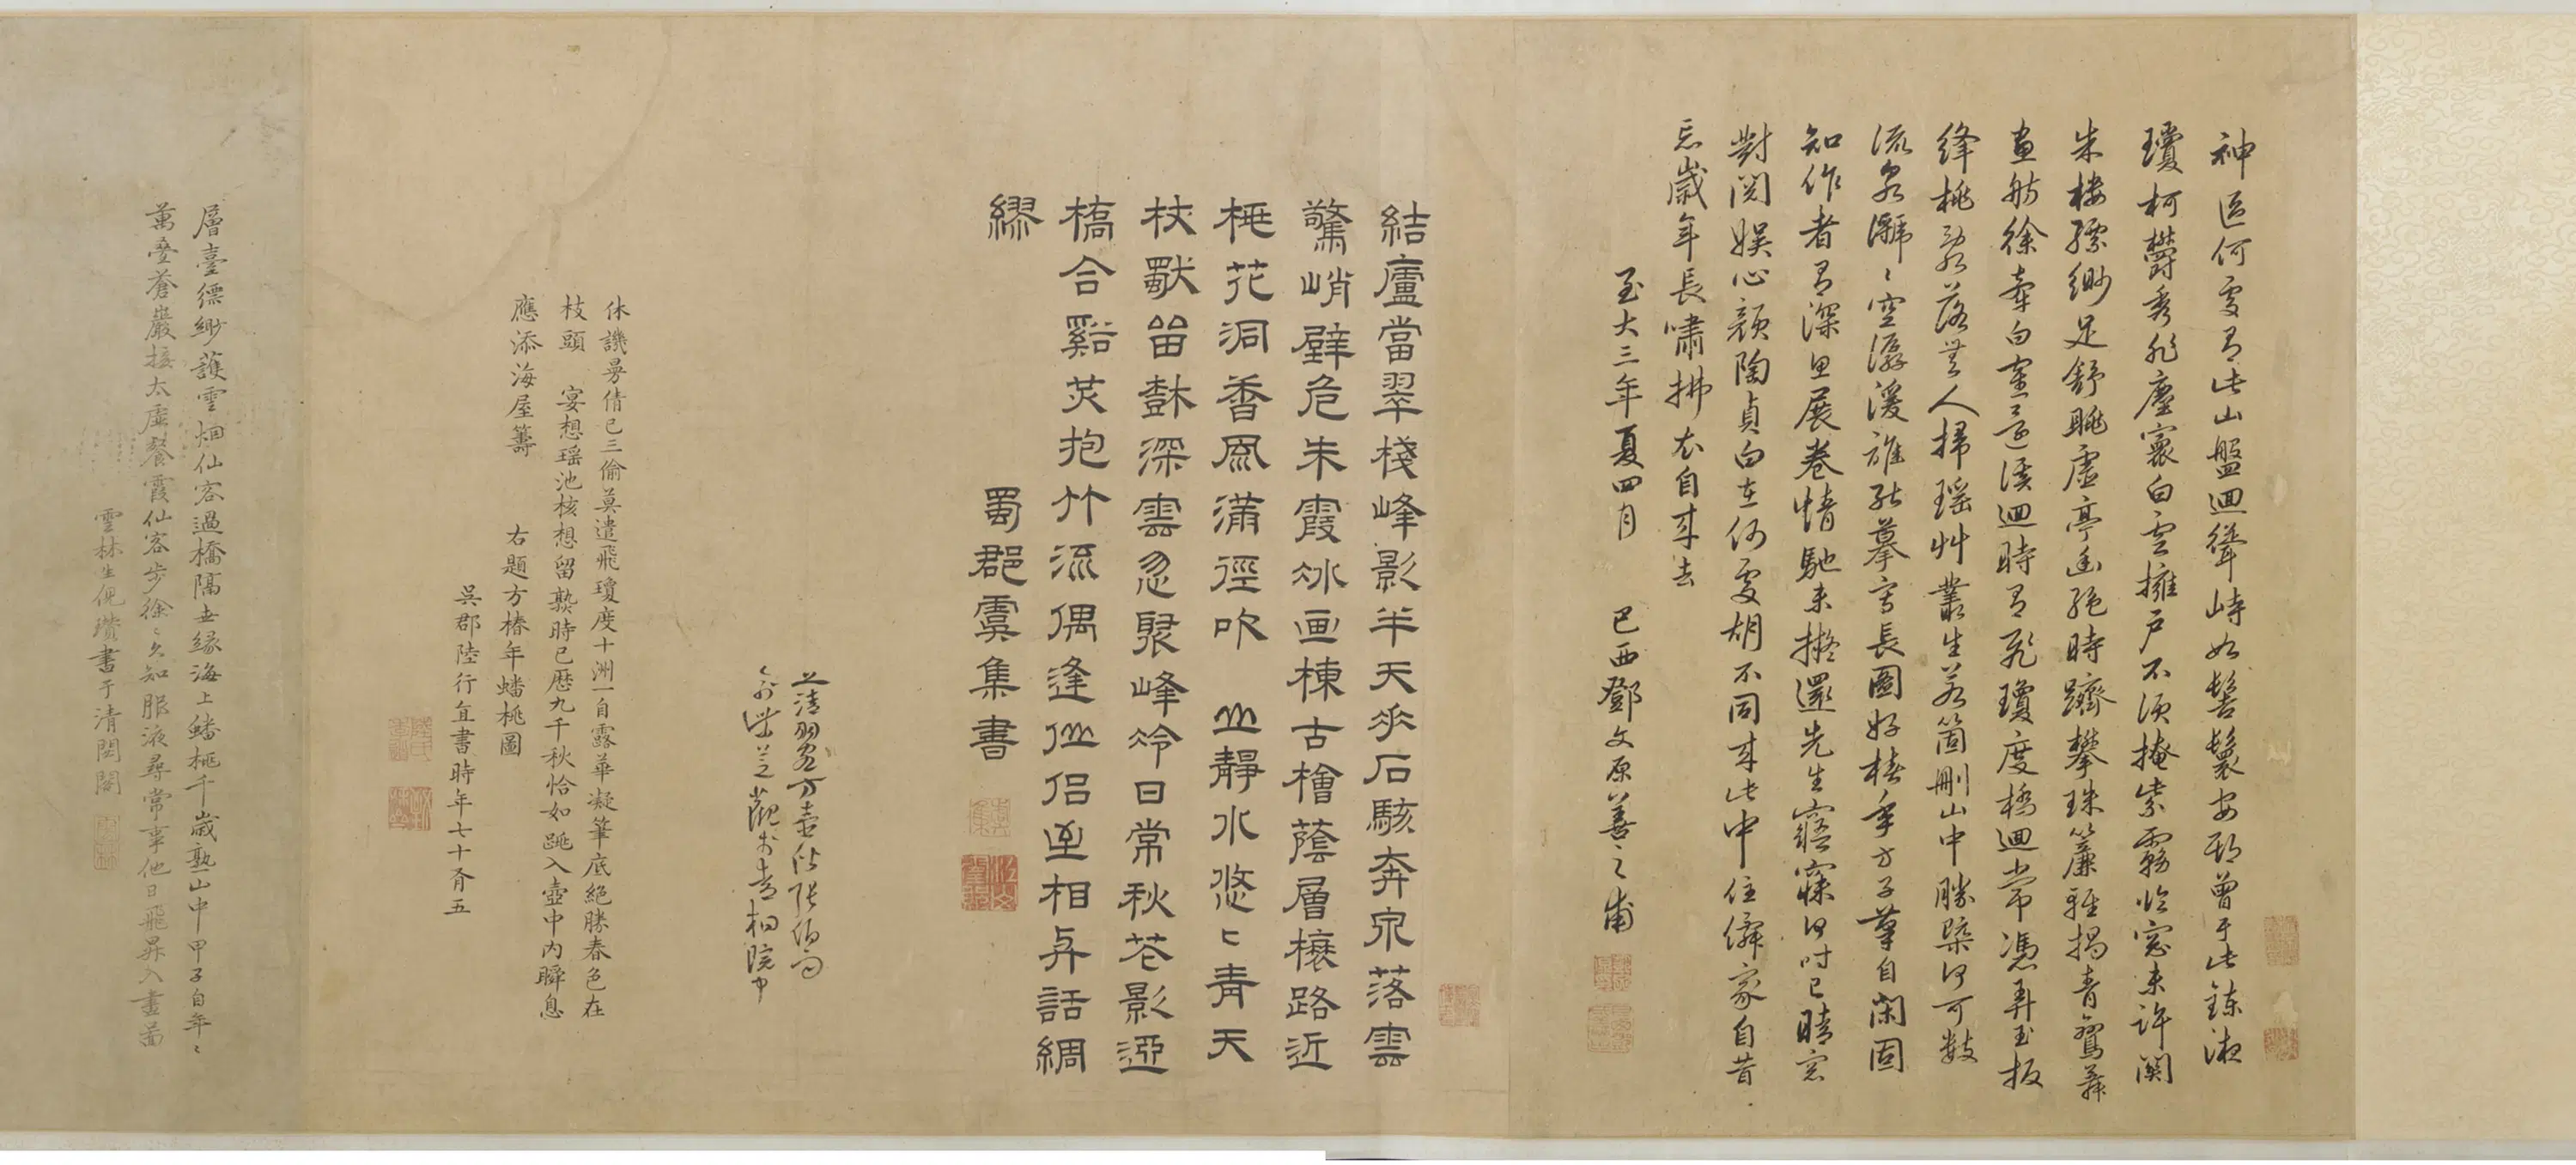 神區何處有此山盤迴聳峙如髻鬟安期曾于此鍊液
瓊柯欝秀非塵寰白雲擁戶不須掩紫霧臨窓未許関
朱樓縹緲足舒眺虛亭幽絶時躋攀珠簾雅揭青鴛
畫舫徐牽白溪迴時有飛瓊度橋迴常憑弄玉扳
絳桃亂落無人掃瑶艸叢生若箇刪山中勝槩何可數
流泉潺湲誰能摹寫長圖好椿年方子筆自閑固
知作者有深思展卷情馳未擬還先生寤寐何時已晴窓
對閱娛心顏陶貞白在何處胡不同来此中住儕家自昔
忘歲年長嘯拂衣自来去
至大三年夏四月 巴西鄧文原善之甫
結廬當翠棧峰影半天來石駭奔泉落雲
驚峭壁危朱霞冰画棟古檜蔭層櫰路近
桃花洞香風滿徑吹 山靜水悠悠青天
杖猷苗深雲忽聚峰冷日常秋花影迎
橋合谿炎抱竹流偶逢仙侶至相與話綢
繆
蜀郡虞集書
上清羽客方壺張伯雨
俞芝觀於青桐院中
休譏曼倩已三偷莫遣飛瓊度十洲一自露華凝筆底絕勝春色在
枝頭 宴想瑶池核想留熟時已歷九千秋恰如跳入壺中內瞬息
應添海屋籌 右題方椿年蟠桃圖
吳郡陸行直書時年七十有五
層臺縹緲護雲烟仙客過橋隔世緣海上蟠桃千歲熟山中甲子自年〻
萬叠蒼巖接太虛餐霞仙客步徐〻久知服液尋常事他日飛昇入畫啚
雲林生倪瓚書于清閟閣